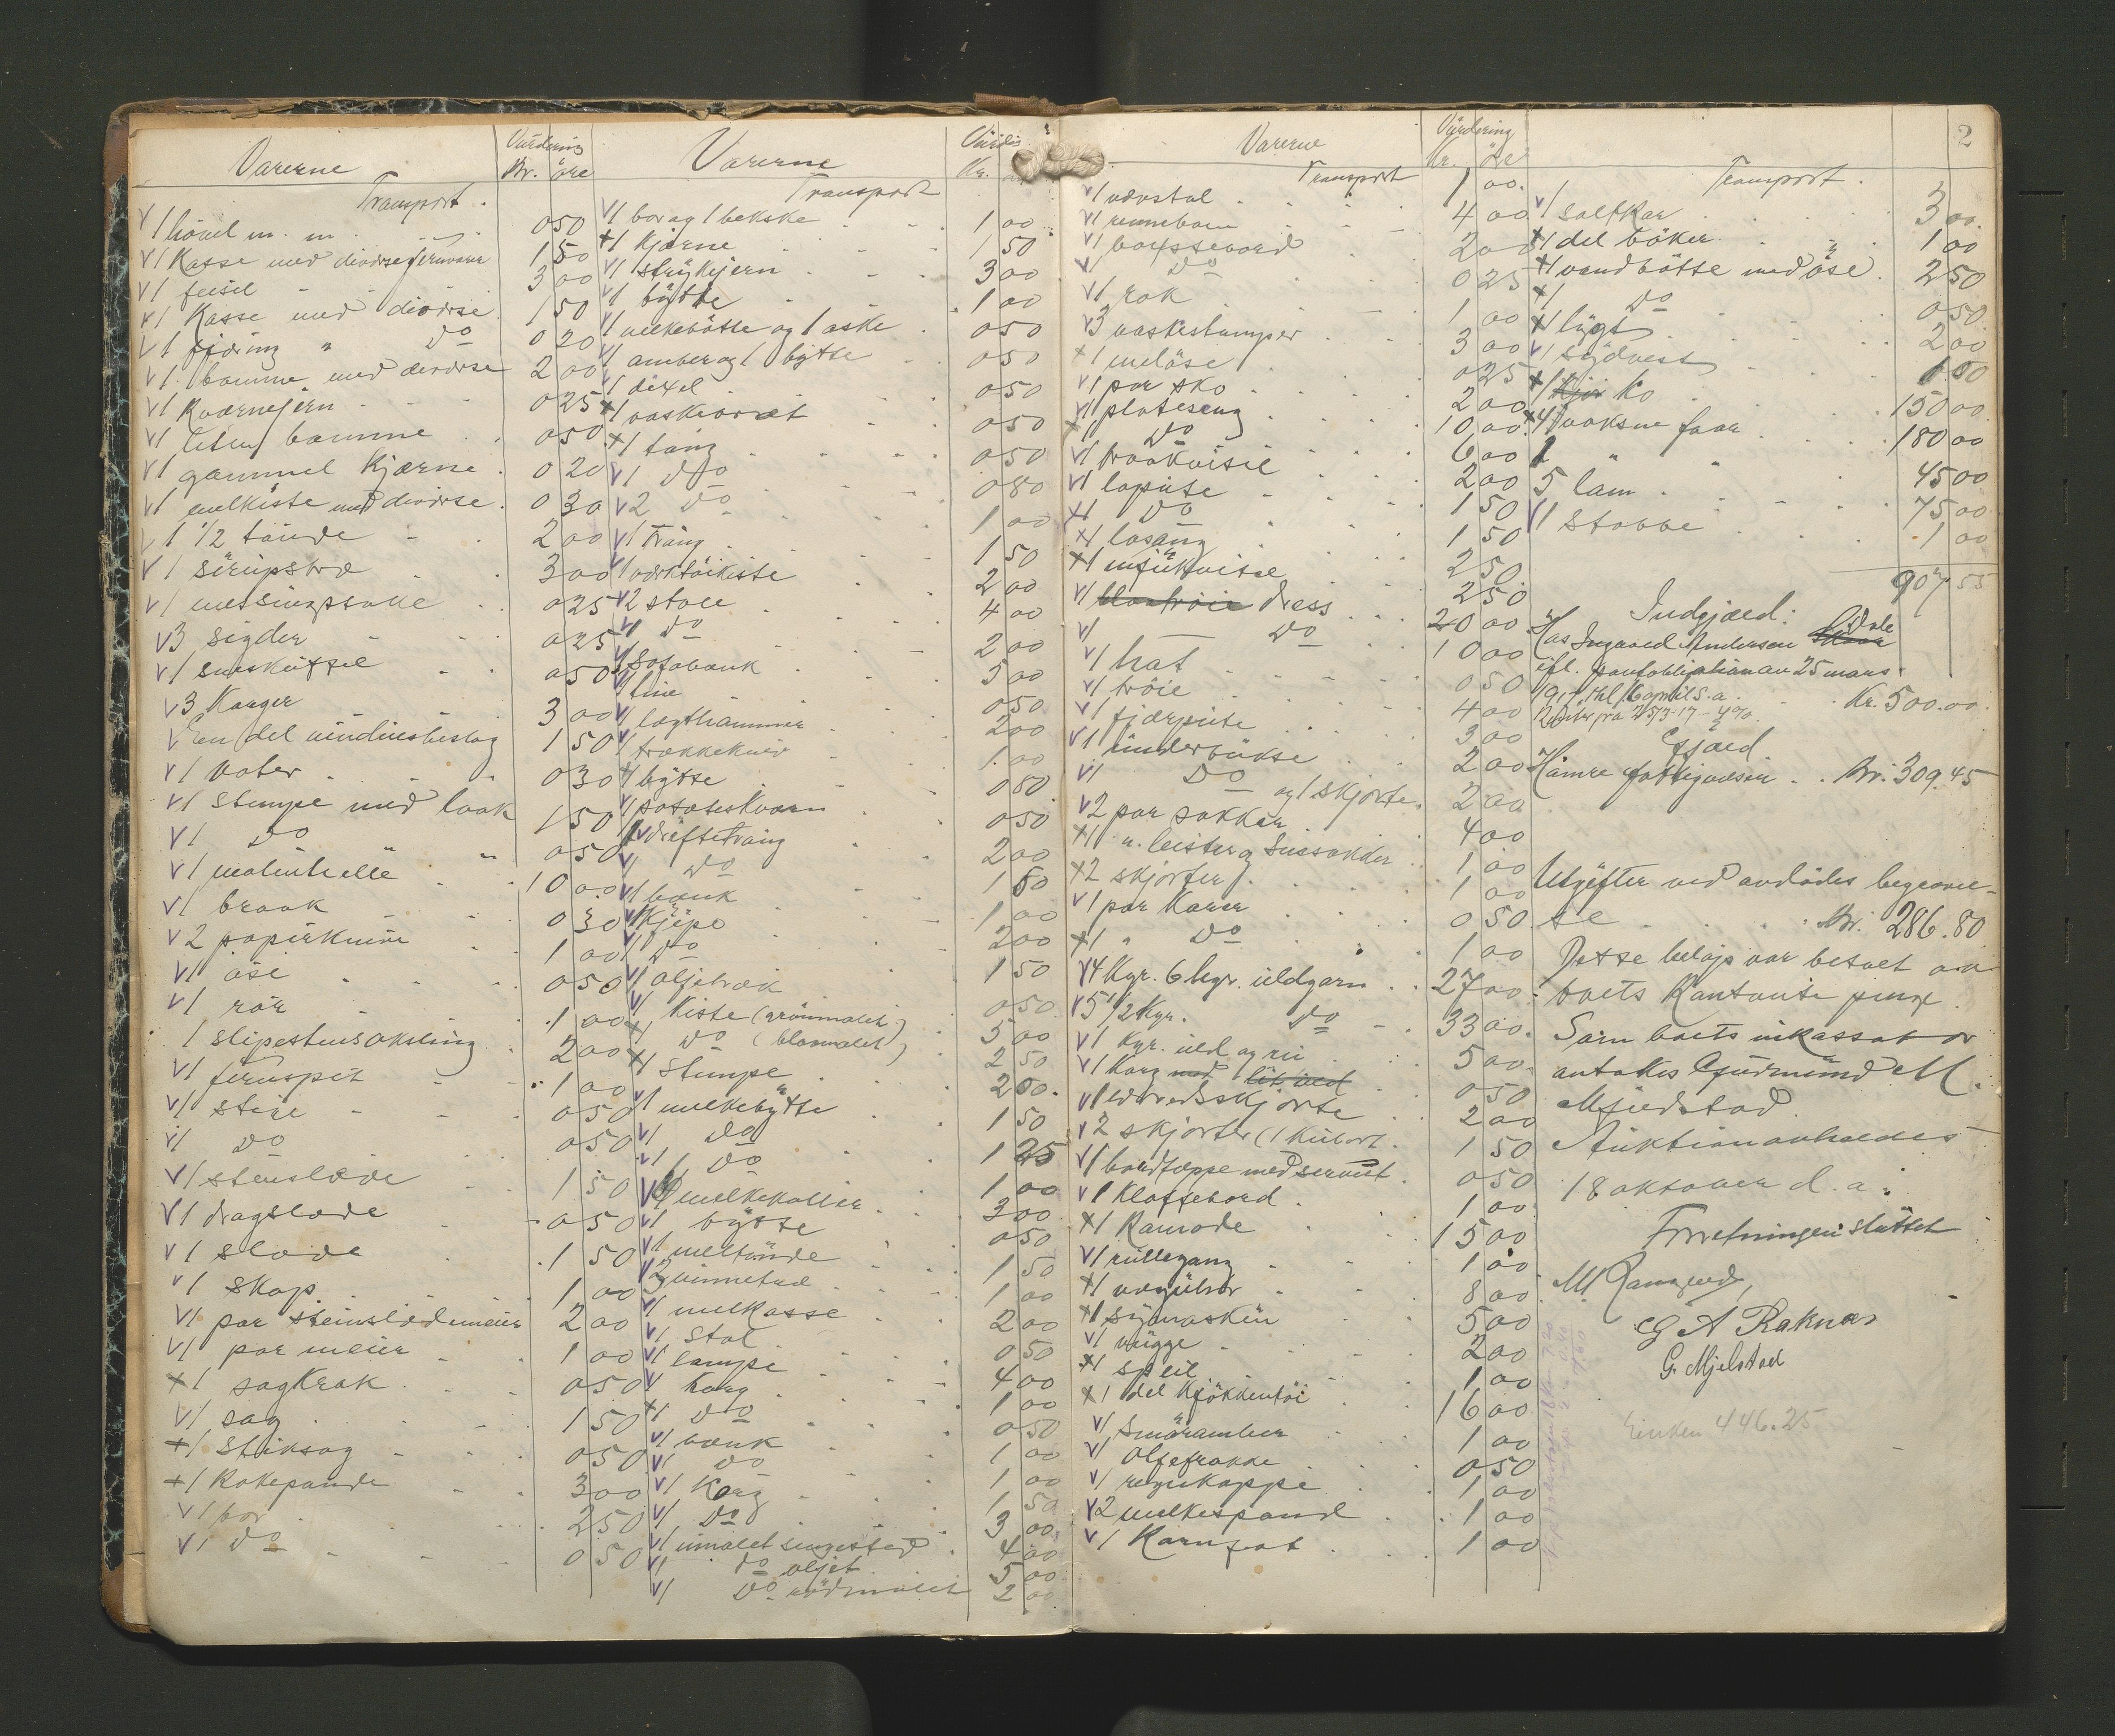 Varerne Vurdering
Kr. öre
Transport.
V 1 hövel m. m. 0 50
V 1 Kasse med diverse jernvarer 1 50
V 1 feisel 3 00
V 1 Kasse med diverse 1 50
V 1 fjæring " Do 0 20
V 1 bomme med diverse 2 00
V 1 Kværnejern 0 25
V 1 liten bomme 0 50
V 1 gammel Kjærne 0 20
V 1 melkiste med diverse 0 30
V 1 1/2 tönde 2 00
V 1 sirupstræ 3 00
V 1 messingpsake 0 25
V 3 sigder 0 25
V 1 0 50
V 3 Karger 3 00
V En del vinduesbeslag 1 50
V 1 vater 0 30
V 1 Stampe med laak 1 50
V 1 Do 0 50
V 1 10 00
V 1 braak 0 30
V 2 papirknive 1 00
V 1 öse 0 50
V 1 rör 1 00
1 slipestensaksling 2 00
V 1 jernspit 1 00
V 1 stige 0 50
V 1 Do 0 50
V 1 stenslæde 1 50
V 1 dragslæde 0 50
V 1 slæde 1 50
V 1 skap 1 00
V 1 par stenslædemeier 2 00
V 1 par meier 1 00
X 1 sagkrak 0 50
V 1 sag 1 50
X 1 Stiksag 0 50
X 1 Kakepande 3 00
V 1 bor 2 50
V 1 Do 0 50
Varerne
Kr.
Transport
V 1 bor og 1 bekske 1 00
X 1 Kjærne 1 50
V 1 strykejern 3 00
V 1 bytte 1 00
V 1 melkebötte og 1 aske 0 50
V 1 amber og 1 bytte 0 50
V 1 dexel 0 50
X 1 vaskebræt 0 50
X 1 tang 0 50
V 1 Do 0 80
V 2 Do 1 00
V 1 Trang 1 50
V 1 værktöikiste 2 00
V 2 stole 4 00
V 1 Do 2 00
V 1 Sofabænk 5 00
V 1 line 0 50
V 1 lagthammer 2 00
V 1 trækkekniv 1 00
V 1 bytte 0 80
V 1 potateskvarn 0 50
V 1 dröftetraug 2 00
V 1 Do 1 50
V 1 bænk 1 00
V 1 Kjipe 2 00
V 1 Do 1 50
V 1 oljebræk 0 50
V 1 Kiste (grönmalet) 5 00
X 1 Do (blaamalet) 2 50
X 1 Stampe 2 00
V 1 melkebytte 1 50
V 1 Do 1 25
V 1 Do 1 00
V 4 melkekoller 3 00
V 1 bytte 0 50
V 1 meltönde 1 50
V 2 vinnetræ 1 00
V 1 melkasse 2 00
V 1 Stol 0 50
V 1 lampe 4 00
V 1 Korg 1 00
X 1 Do 0 50
V 1 bænk 1 00
V 1 Do 1 00
V 1 Korg 1 50
V 1 Do 3 00
V 1 umalet sengested 4 00
V 1 Do oljet 5 00
V 1 Do rödmalet 2 00
Varerne Vurdering
Kr. öre
Transport
V 1 vævstol 1 00
V 1 rennebom 4 00
V 1 2 00
V Do 0 25
V 1 rok 1 00
V 3 vaskestamper 3 00
X 1 melöse 0 25
V 1 par sko 2 00
V 1 plateseng 10 00
X Do 6 00
V 1 traakvisil 2 00
V 1 lapute 1 50
X 1 Do 1 50
X 1 2 50
X 1 2 50
V 1 dress 20 00
V 1 Do 10 00
V 1 hat 0 50
V 1 tröie 4 00
V 1 fjærpute 3 00
V 1 underbukse 2 00
V 1 Do og 1 skjorte 2 00
V 2 par sokker 4 00
X 1 u. leister og 1 00
X 2 skjorter 1 00
V 1 par Karer 0 50
X 1 " Do 1 00
V 4 Kgr. 6 hgr. uldgarn 27 00
V 5 1/2 Kgr. Do 33 00
V 1 Kgr. uld og rii 5 00
V 1 Korg 0 50
V 1 skjorte 2 00
V 2 skjorter (1 1 50
V 1 bordteppe med serviet 0 50
V 1 Klaffebord 1 00
X 1 Kamode 15 00
V 1 rullegang 1 00
X 1 vægtuhr 8 00
X 1 symaskin 5 00
V 1 vugge 2 00
X 1 speil 1 00
X 1 del Kjökkentöi 16 00
V 1 Smöramber 1 00
V 1 Oljefrakke 0 50
V 1 regnkappe 1 00
V 2 melkespand 1 00
V 1 Kornfat 1 00
2
Transport.
V 1 saltkar 3 00
X 1 del böker 1 00
X 1 vandbötte med öse 2 50
X 1 Do 0 50
X 1 lygt 2 00
V 1 sydvest 1 50
X 1 ko 150 00
X 4 voksne faar 180 00
1 " " 45 00
5 lam 75 00
V 1 Stabbe 1 00
907 55
Indgjæld:
Hos Ingvald Andersen Dale
ifl. pantobligation av 25 mars
1917, thl 16 april s. a. Kr. 500.00.
Renter fra 25/3-17 - 4%.
Gjæld
Hamre fattigvæsen Kr. 309.45
Utgifter ved avdödes begravel-
se Kr. 286.80
Dette belöp var betalt av
boets Kontante penge.
Som boets inkassator
antokes Gudmund M.
Mjelstad.
Auktion avholdes
18 oktober d. a.
Forretningen sluttet
M Ramgred,
G A Raknes
G. Mjelstad
Enken 446.25